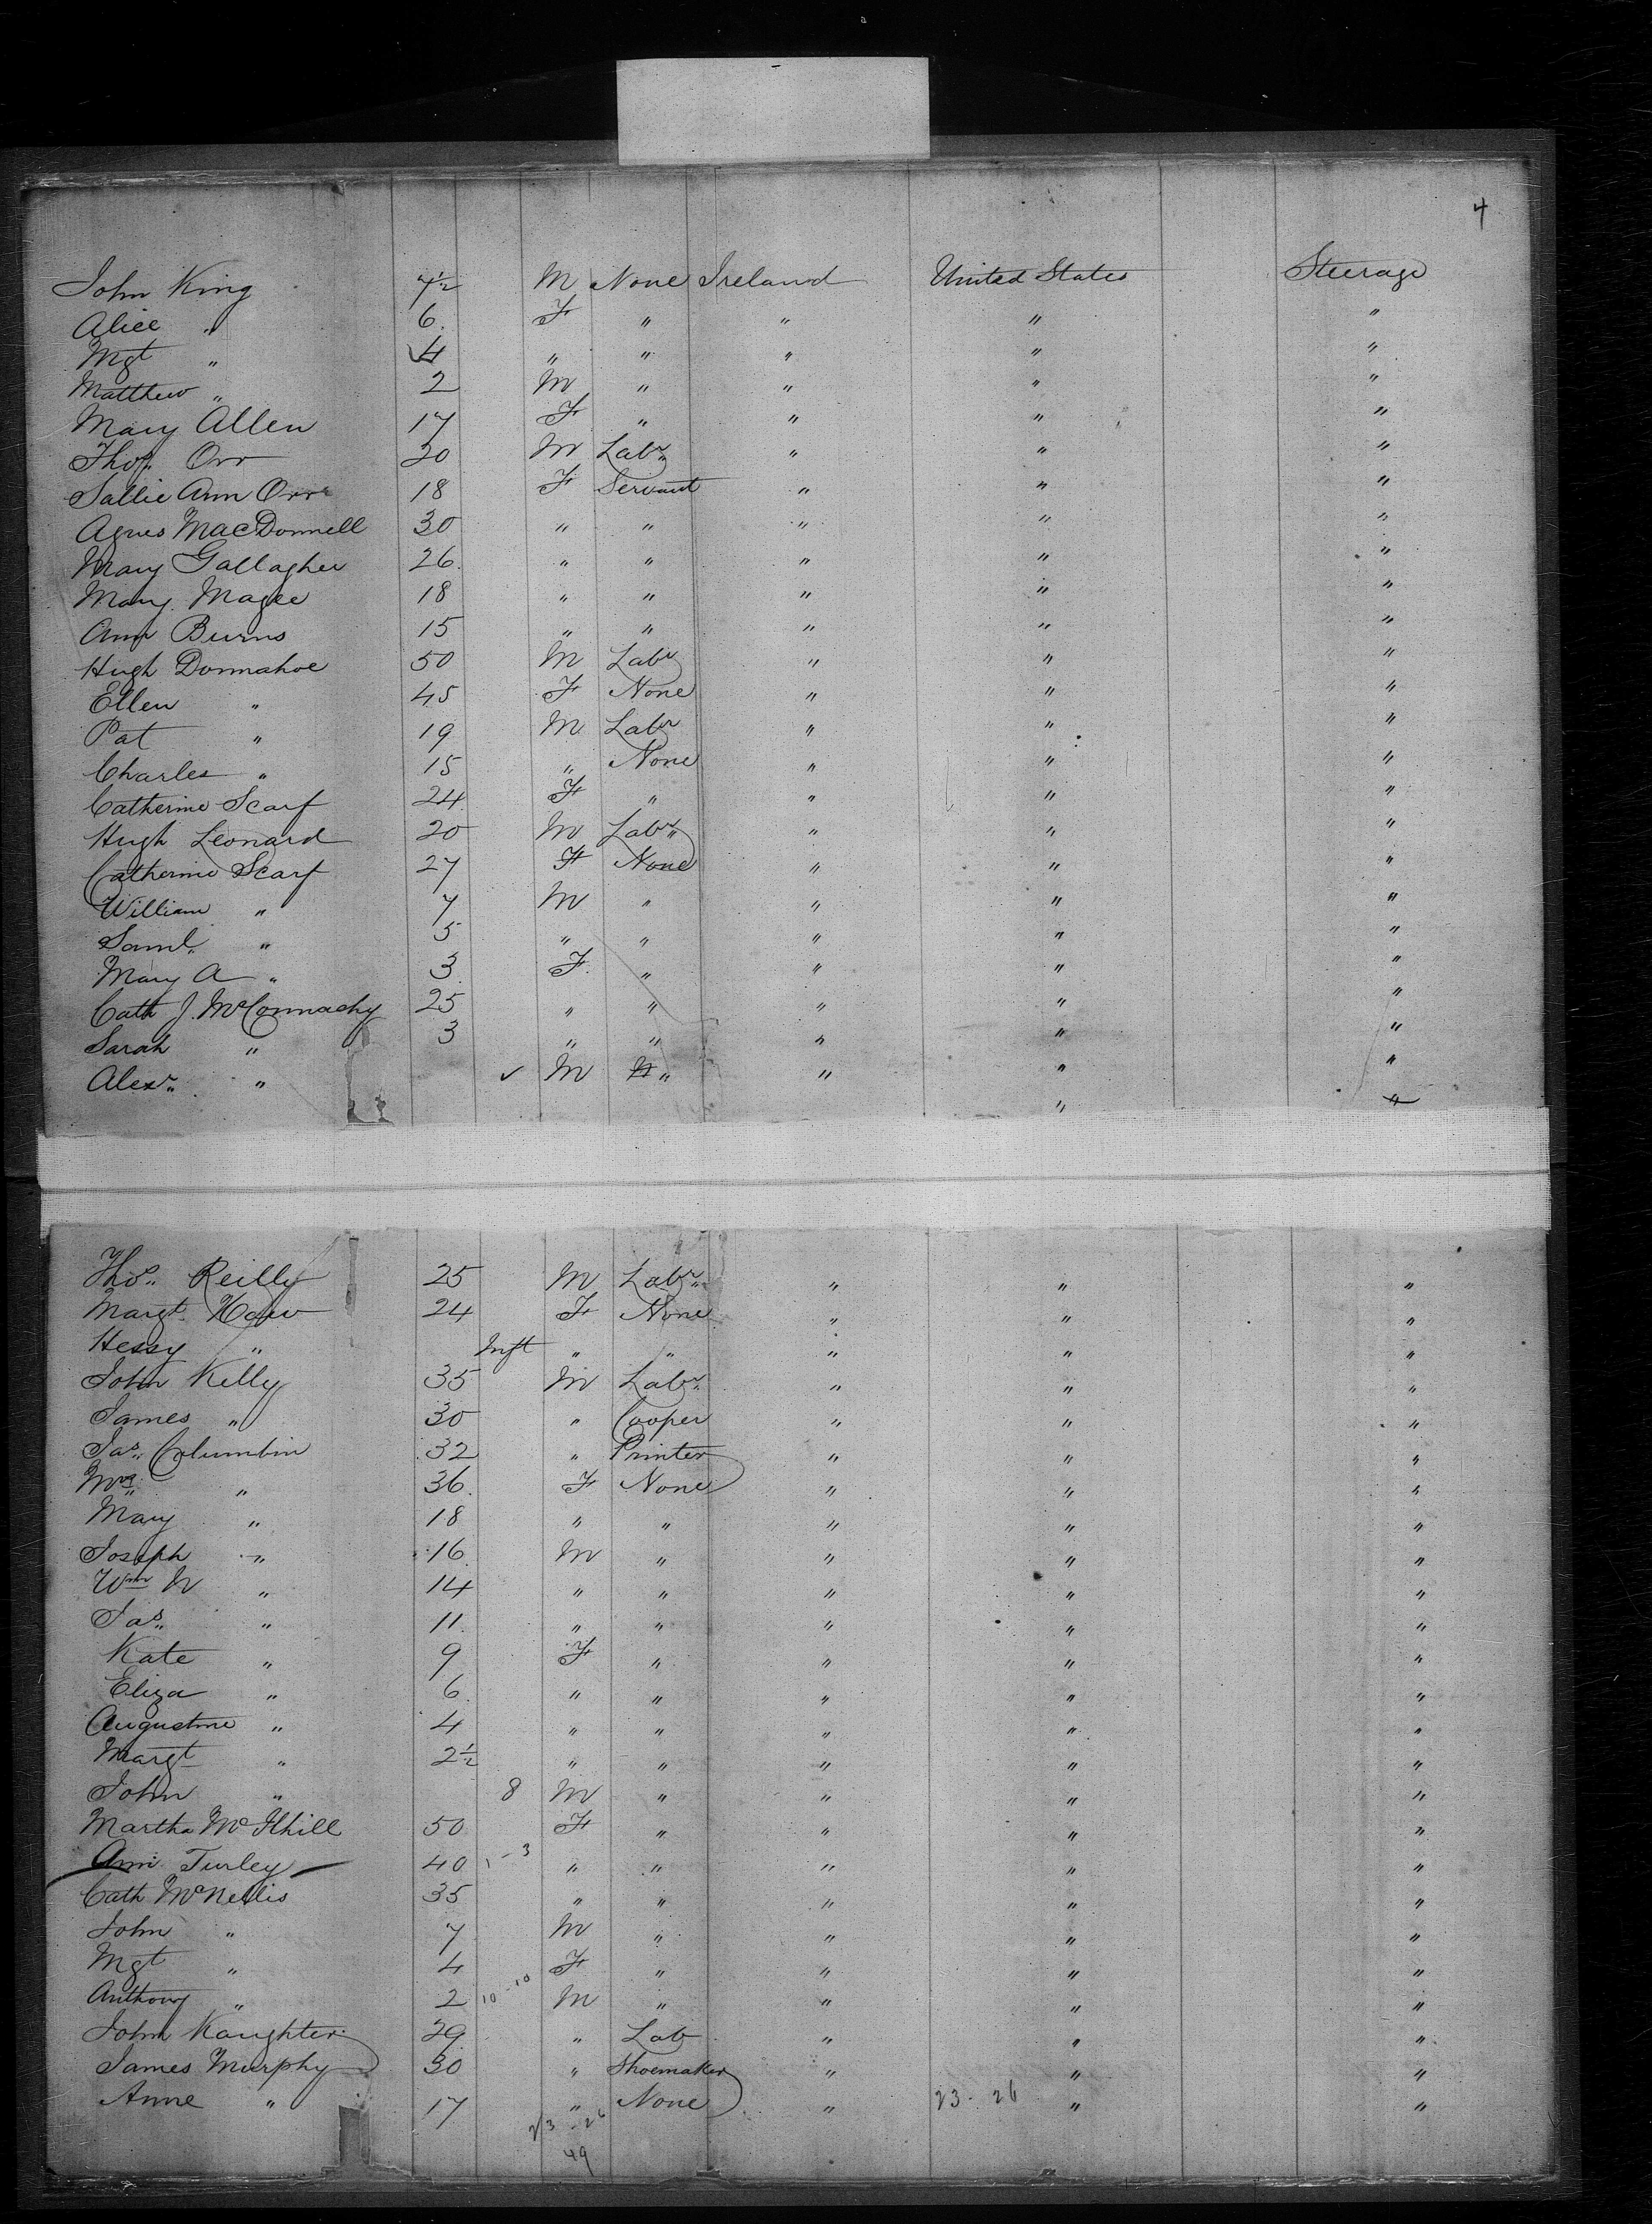 4
John King 7½ M None Ireland United States Steerage
Alice " 6 F " " " "
Mgt " 4 " " " " "
Matthew " 2 M " " " "
Mary Allen 17 F " " " "
Thos. Orr 20 M Labr " " "
Sallie Ann Orr 18 F Servant " " "
Agnes MacDonnell 30 " " " " "
Mary Gallagher 26 " " " " "
Mary Magee 18 " " " " "
Ann Burns 15 " " " " "
Hugh Donnahoe 50 M Labr " " "
Ellen " 45 F None " " "
Pat " 19 M Labr " " "
Charles " 15 " None " " "
Catherine Scarf 24 F " " " "
Hugh Leonard 20 M Labr " " "
Catherine Scarf 27 F None " " "
William " 7 M " " " "
Saml. " 5 " " " " "
Mary A " 3 F " " " "
Cath J. McConnachy 25 " " " " "
Sarah " 3 " " " " "
Alexr. " ✓ M " " " "
" "
Thos. Reilly 25 M Labr. " " "
Margt. Haw 24 F None " " "
Hessy " Inft " " " " "
John Kelly 35 M Labr. " " "
James " 30 " Cooper " " "
Jas. Columbin 32 " Printer " " "
Mrs. " 36 F None " " "
Mary " 18 " " " " "
Joseph " 16 M " " " "
Wm N " 14 " " " " "
Jas. " 11 " " " " "
Kate " 9 F " " " "
Eliza " 6 " " " " "
Augustine " 4 " " " " "
Margt " 2½ " " " " "
John " 8 M " " " "
Martha McIlhill 50 F " " " "
Ann Turley 40 1 - 3 " " " " "
Cath McNellis 35 " " " " "
John " 7 M " " " "
Mgt " 4 F " " " "
Anthony " 2 10 - 10 M " " " "
John Kaughter 29 " Lab " " "
James Murphy 30 " Shoemaker " " "
Anne " 17 " None " 23 - 26 " "
23 - 26
49